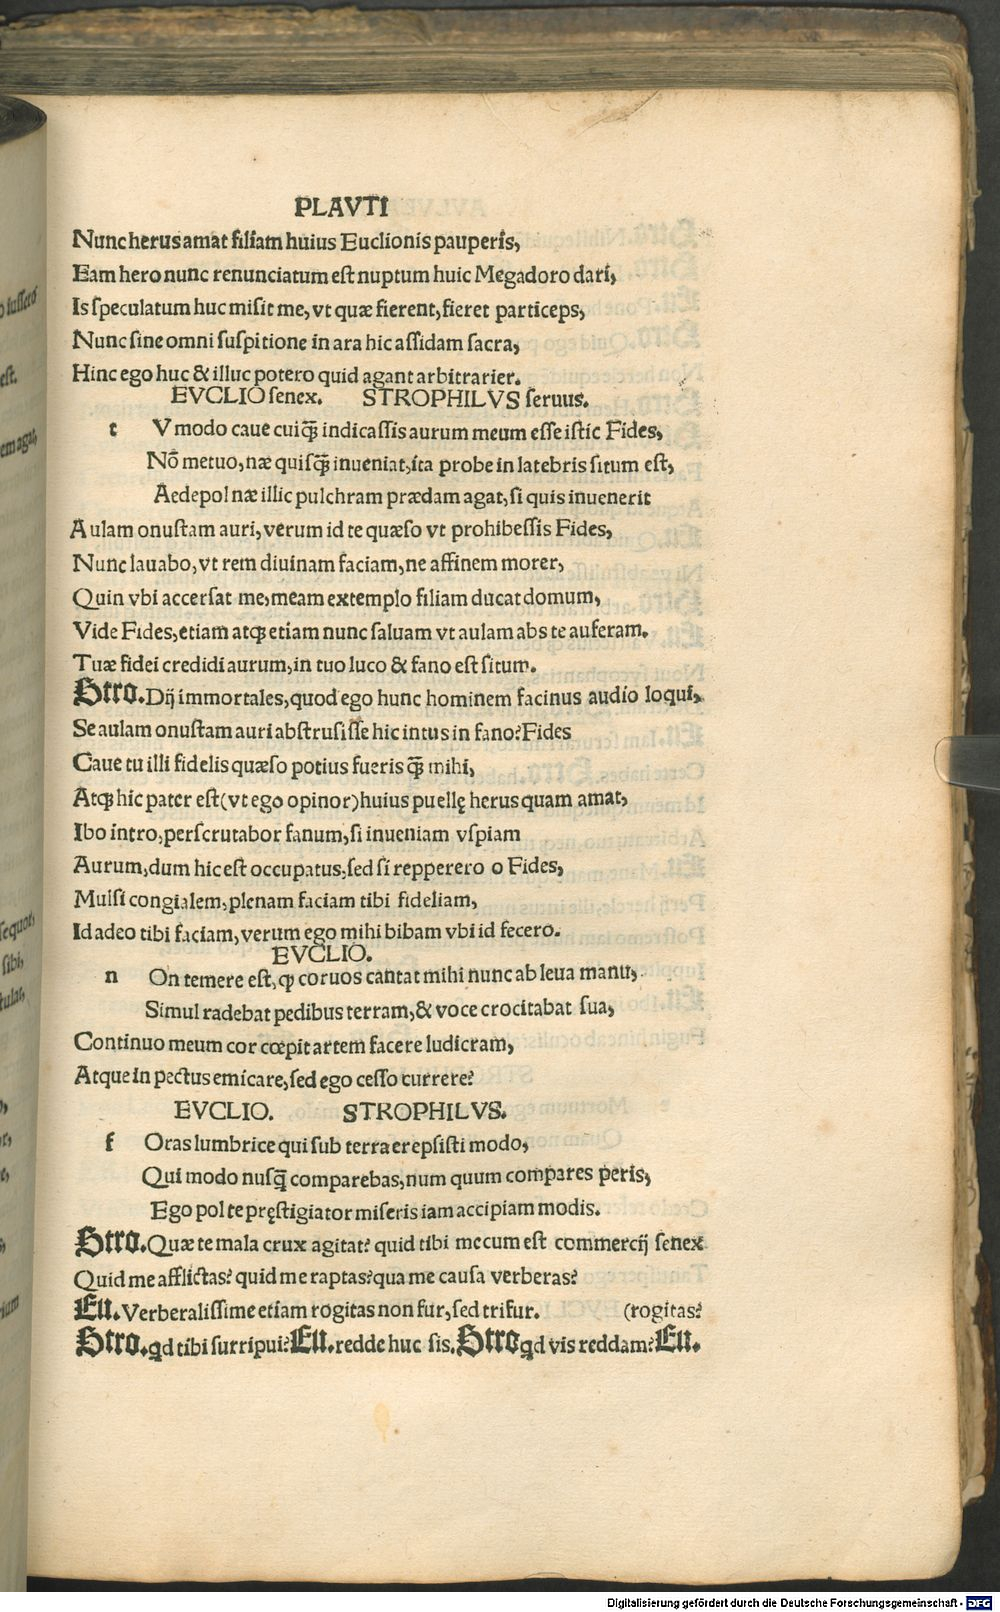 PLAVTI
Nunc herus amat filiam huius Euclionis pauperis,
Eam hero nunc renunciatum est nuptum huic Megadoro dari,
Is speculatum huc misit me, vt quæ fierent, fieret particeps,
Nunc sine omni suspitione in ara hic assidam sacra,
Hinc ego huc & illuc potero quid agant arbitrarier.
EVCLIO senex. STROPHILVS seruus.
t V modo caue cuiq̃ indicassis aurum meum esse istic Fides,
Nō metuo, næ quisq̃ inueniat, ita probe in latebris situm est,
Aedepol næ illic pulchram prædam agat, si quis inuenerit
Aulam onustam auri, verum id te quæso vt prohibessis Fides,
Nunc lauabo, vt rem diuinam faciam, ne affinem morer,
Quin vbi accersat me, meam extemplo filiam ducat domum,
Vide Fides, etiam atqꝫ etiam nunc saluam vt aulam abs te auferam.
Tuæ fidei credidi aurum, in tuo luco & fano est situm.
Stro. Dij immortales, quod ego hunc hominem facinus audio loqui,
Se aulam onustam auri abstrusisse hic intus in fano? Fides
Caue tu illi fidelis quæso potius fueris q̃ mihi,
Atqꝫ hic pater est (vt ego opinor) huius puellę herus quam amat,
Ibo intro, perscrutabor fanum, si inueniam vspiam
Aurum, dum hic est occupatus, sed si repperero o Fides,
Mulsi congialem, plenam faciam tibi fideliam,
Id adeo tibi faciam, verum ego mihi bibam vbi id fecero.
EVCLIO.
n On temere est, ꝙ coruos cantat mihi nunc ab leua manu,
Simul radebat pedibus terram, & voce crocitabat sua,
Continuo meum cor cœpit artem facere ludicram,
Atque in pectus emicare, sed ego cesso currere?
EVCLIO. STROPHILVS.
f Oras lumbrice qui sub terra erepsisti modo,
Qui modo nusq̃ comparebas, num quum compares peris,
Ego pol te pręstigiator miseris iam accipiam modis.
Stro. Quæ te mala crux agitat? quid tibi mecum est commercij senex
Quid me afflictas? quid me raptas? qua me causa verberas?
Eu. Verberalissime etiam rogitas non fur, sed trifur. (rogitas?
Stro. qd tibi surripui? Eu. redde huc sis. Stro qd vis reddam? Eu.
Digitalisierung gefördert durch die Deutsche Forschungsgemeinschaft - DFG